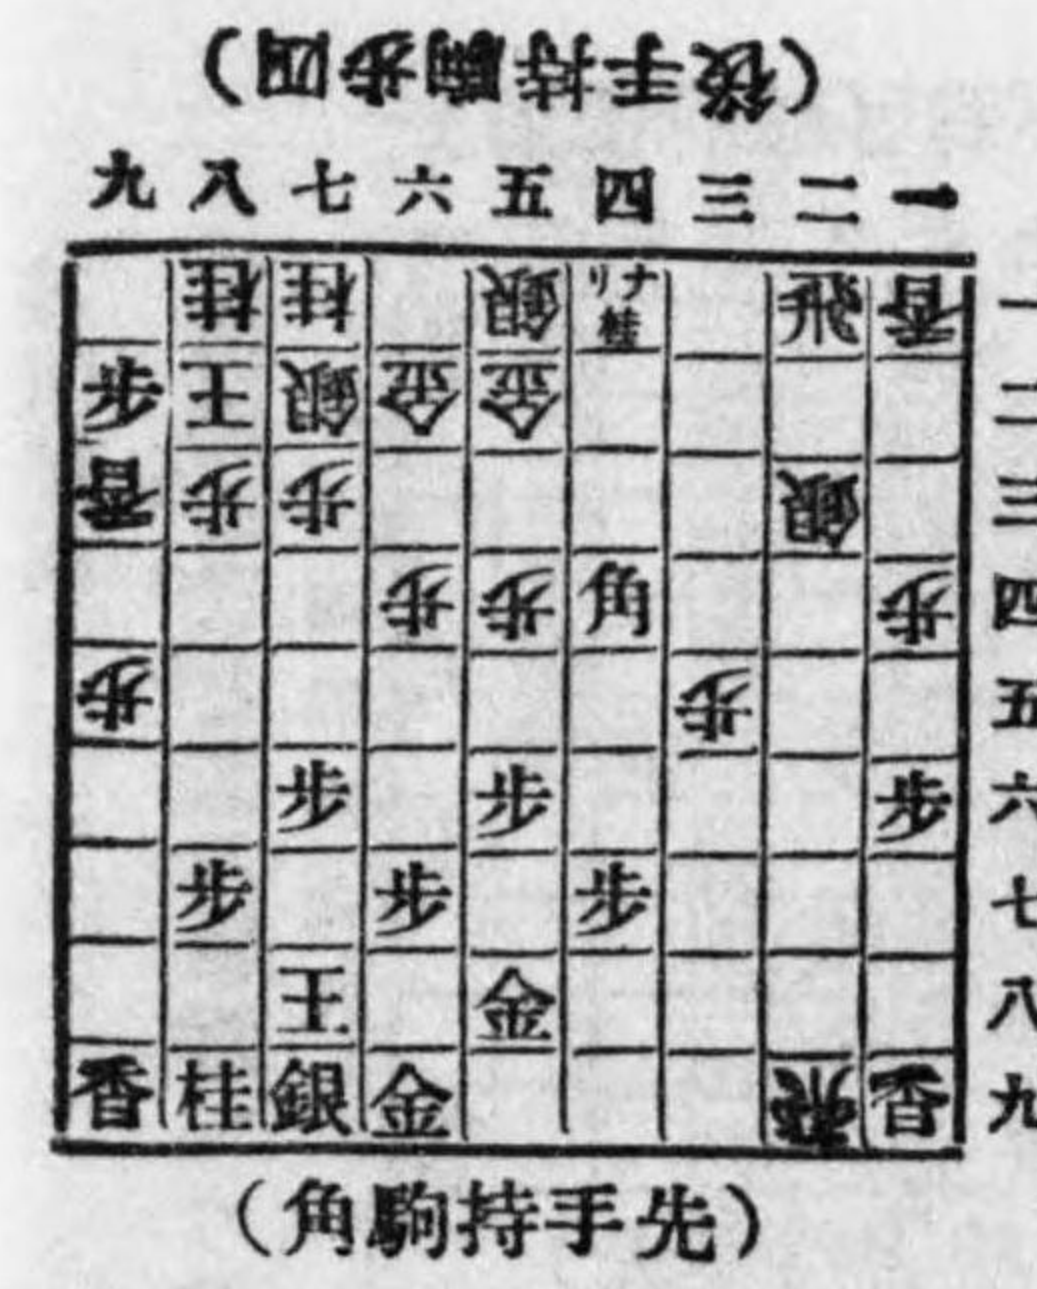 （後手持駒歩四）
九 八 七 六 五 四 三 二 一
桂 桂 銀 ナリ桂 飛 香 一
歩 王 銀 金 金 二
香 歩 歩 銀 三
歩 歩 角 歩 四
歩 歩 五
歩 歩 歩 六
歩 歩 歩 七
王 金 八
香 桂 銀 金 飛 香 九
（先手持駒角）